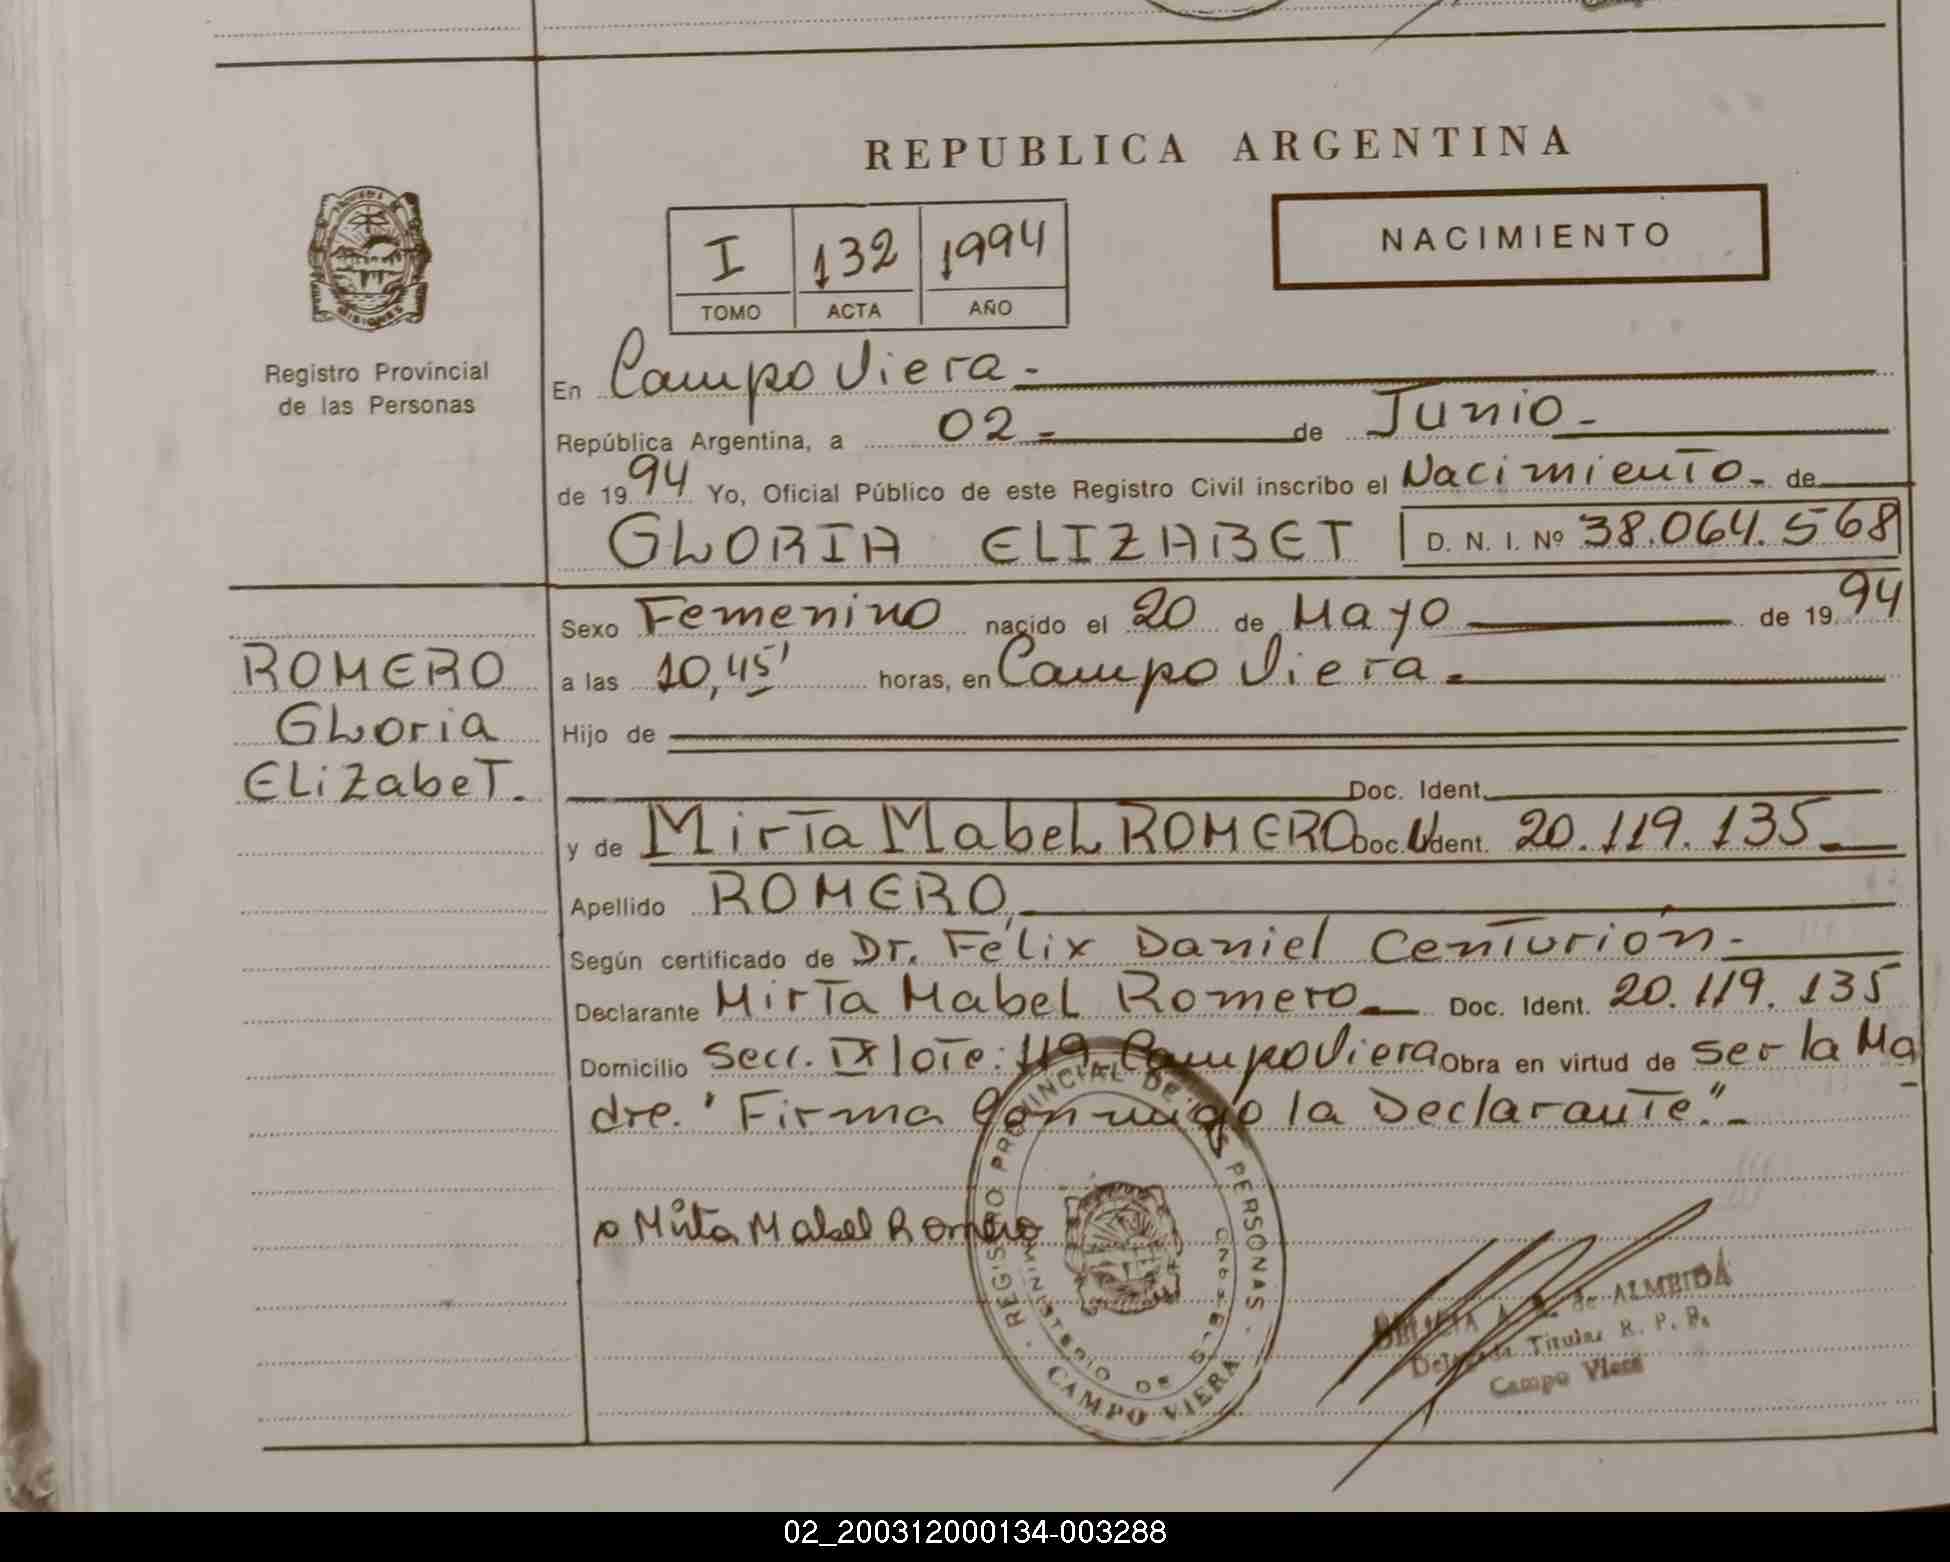 REPUBLICA ARGENTINA
NACIMIENTO
I 132 1994
TOMO ACTA AÑO
MISIONES
Registro Provincial
de las Personas
En Campo Viera.-
República Argentina, a 02- de Junio-
de 1994 Yo, Oficial Público de este Registro Civil inscribo el Nacimiento- de
GLORIA ELIZABET D. N. I. Nº 38.064.568
Sexo Femenino nacido el 20 de Mayo de 1994
a las 10,45' horas, en Campo Viera.-
ROMERO
Gloria
Elizabet.
Hijo de
Doc. Ident.
y de Mirta Mabel ROMERO Doc. Ident. 20.119.135-
Apellido ROMERO
Según certificado de Dr. Félix Daniel Centurión.-
Declarante Mirta Mabel Romero- Doc. Ident. 20.119.135
Domicilio Secc. IX lote: 119- Campo Viera Obra en virtud de ser la Ma
dre. "Firma Conmigo la Declarante."-
Mirta Mabel Romero
REGISTRO PROVINCIAL DE LAS PERSONAS
MINISTERIO DE
CAMPO VIERA
de ALMEIDA
Delegada Titular R. P. P.
Campo Viera
02_200312000134-003288